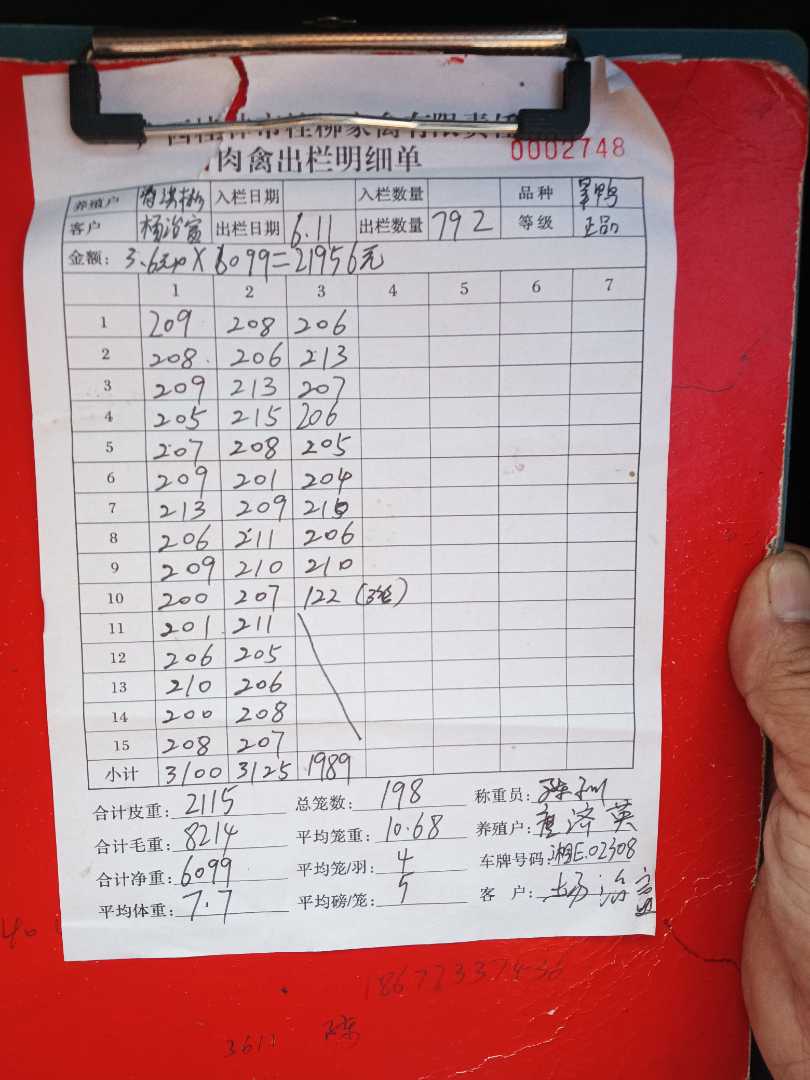 桂柳家禽有限责任
肉禽出栏明细单 0002748
养殖户 入栏日期 入栏数量 品种
客户 杨治富 出栏日期 6.11 出栏数量 792 等级 正品
金额: 3.6元 X 6099=21956元
1 2 3 4 5 6 7
1 209 208 206
2 208 206 213
3 209 213 207
4 205 215 206
5 207 208 205
6 209 201 204
7 213 209 210
8 206 211 206
9 209 210 210
10 200 207 122
11 201 211
12 206 205
13 210 206
14 200 208
15 208 207
小计 3100 3125 1989
合计皮重: 2115 总笼数: 198 称重员:
合计毛重: 8214 平均笼重: 10.68 养殖户: 济英
合计净重: 6099 平均笼/羽: 4 车牌号码: 湘E.02308
平均体重: 7.7 平均磅/笼: 5 客户: 杨治富
3611 陈